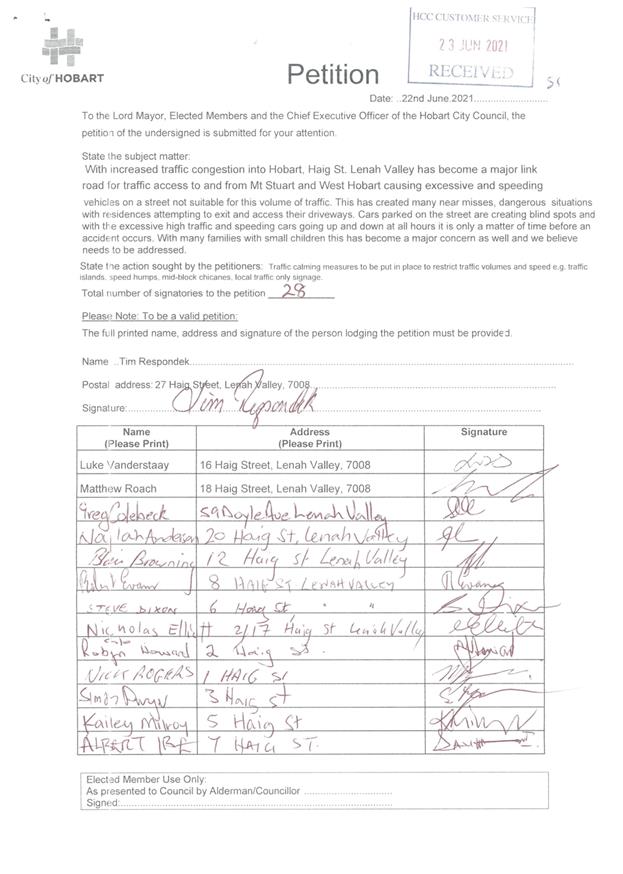 HCC CUSTOMER SERVICE
23 JUN 2021
RECEIVED
City of HOBART
Petition
Date: ..22nd June.2021...........................
To the Lord Mayor, Elected Members and the Chief Executive Officer of the Hobart City Council, the
petition of the undersigned is submitted for your attention.
State the subject matter:
With increased traffic congestion into Hobart, Haig St. Lenah Valley has become a major link
road for traffic access to and from Mt Stuart and West Hobart causing excessive and speeding
vehicles on a street not suitable for this volume of traffic. This has created many near misses, dangerous situations
with residences attempting to exit and access their driveways. Cars parked on the street are creating blind spots and
with the excessive high traffic and speeding cars going up and down at all hours it is only a matter of time before an
accident occurs. With many families with small children this has become a major concern as well and we believe
needs to be addressed.
State the action sought by the petitioners: Traffic calming measures to be put in place to restrict traffic volumes and speed e.g. traffic
islands, speed humps, mid-block chicanes, local traffic only signage.
Total number of signatories to the petition 28
Please Note: To be a valid petition:
The full printed name, address and signature of the person lodging the petition must be provided.
Name ..Tim Respondek..............................
Postal address: 27 Haig Street, Lenah Valley, 7008..............................
Signature: Tim Respondek
Name (Please Print) Address (Please Print) Signature
Luke Vanderstaay 16 Haig Street, Lenah Valley, 7008
Matthew Roach 18 Haig Street, Lenah Valley, 7008
Greg Colebeck 59 Doyle Ave Lenah Valley
Najlah Anderson 20 Haig St, Lenah Valley
Browning 12 Haig st Lenah Valley
Evans 8 HAIG ST LENAH VALLEY
STEVE DIXON 6 Haig St " "
Nicholas Elliott 2/17 Haig St Lenah Valley
Robyn Howard 2 Haig St.
NICK ROGERS 1 HAIG St
Simon 3 Haig st
Kailey Milroy 5 Haig St
ALBERT 7 HAIG ST.
Elected Member Use Only:
As presented to Council by Alderman/Councillor ..............................
Signed:..............................